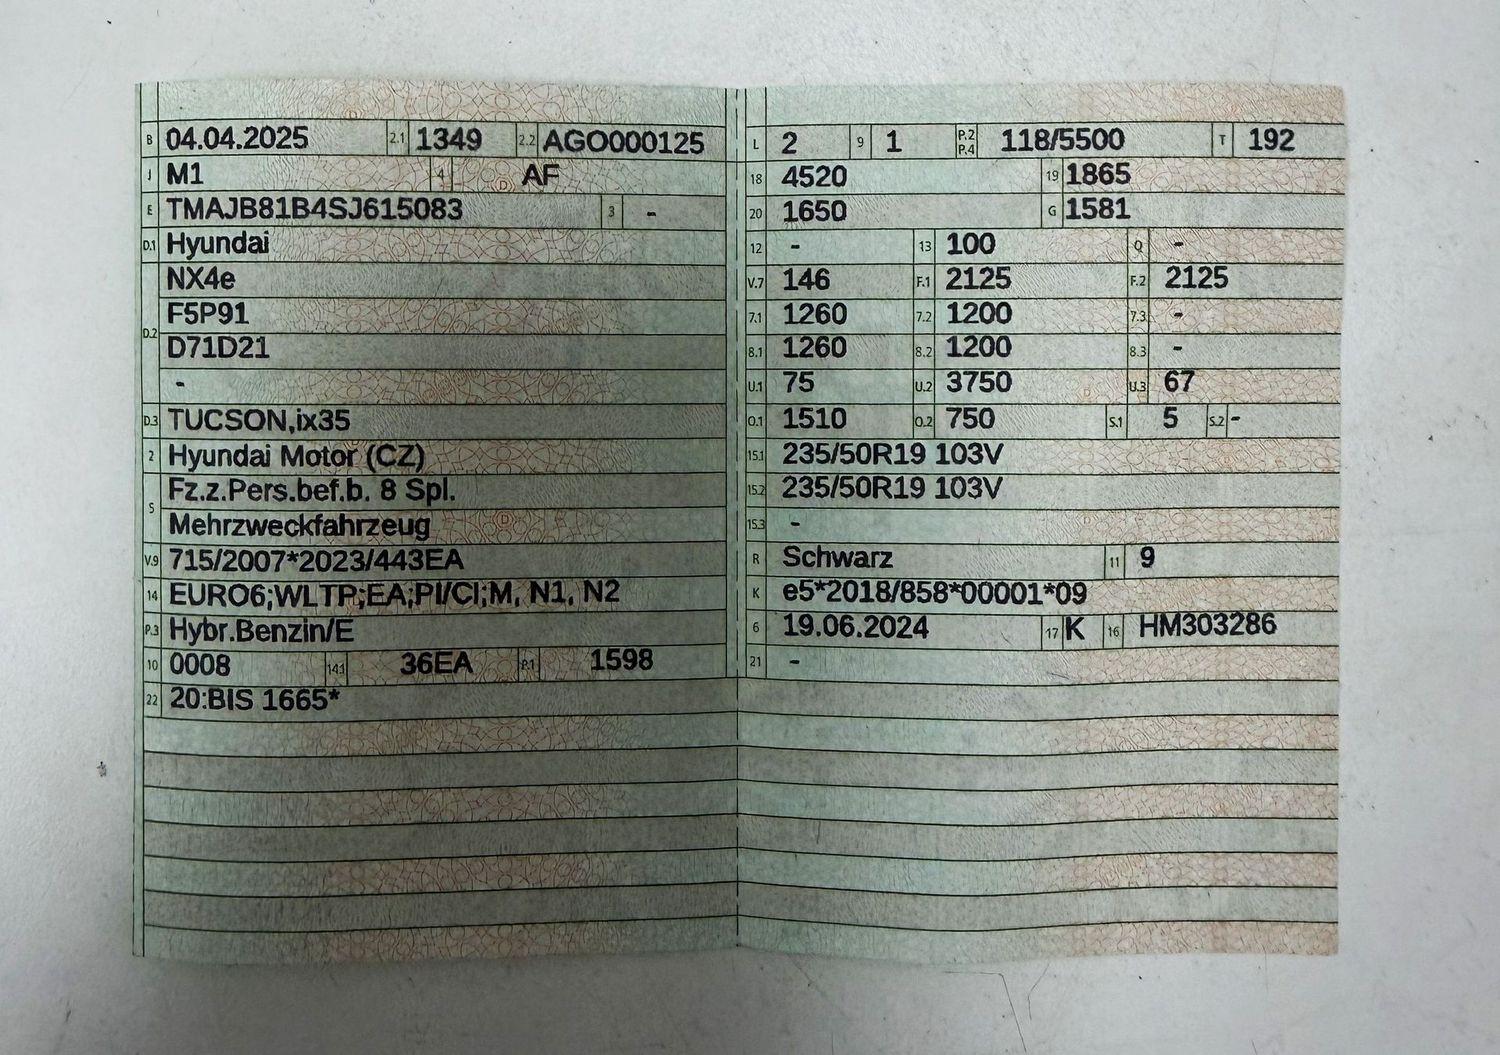 B 04.04.2025 2.1 1349 2.2 AGO000125
J M1 4 AF
E TMAJB81B4SJ615083 3 -
D.1 Hyundai
NX4e
F5P91
D.2
D71D21
-
D.3 TUCSON,ix35
2 Hyundai Motor (CZ)
Fz.z.Pers.bef.b. 8 Spl.
5
Mehrzweckfahrzeug
V.9 715/2007*2023/443EA
14 EURO6;WLTP;EA;PI/CI;M, N1, N2
P.3 Hybr.Benzin/E
10 0008 14.1 36EA P.1 1598
22 20:BIS 1665*
L 2 9 1 P.2 P.4 118/5500 T 192
18 4520 19 1865
20 1650 G 1581
12 - 13 100 Q -
V.7 146 F.1 2125 F.2 2125
7.1 1260 7.2 1200 7.3 -
8.1 1260 8.2 1200 8.3 -
U.1 75 U.2 3750 U.3 67
O.1 1510 O.2 750 S.1 5 S.2 -
15.1 235/50R19 103V
15.2 235/50R19 103V
15.3 -
R Schwarz 11 9
K e5*2018/858*00001*09
6 19.06.2024 17 K 16 HM303286
21 -